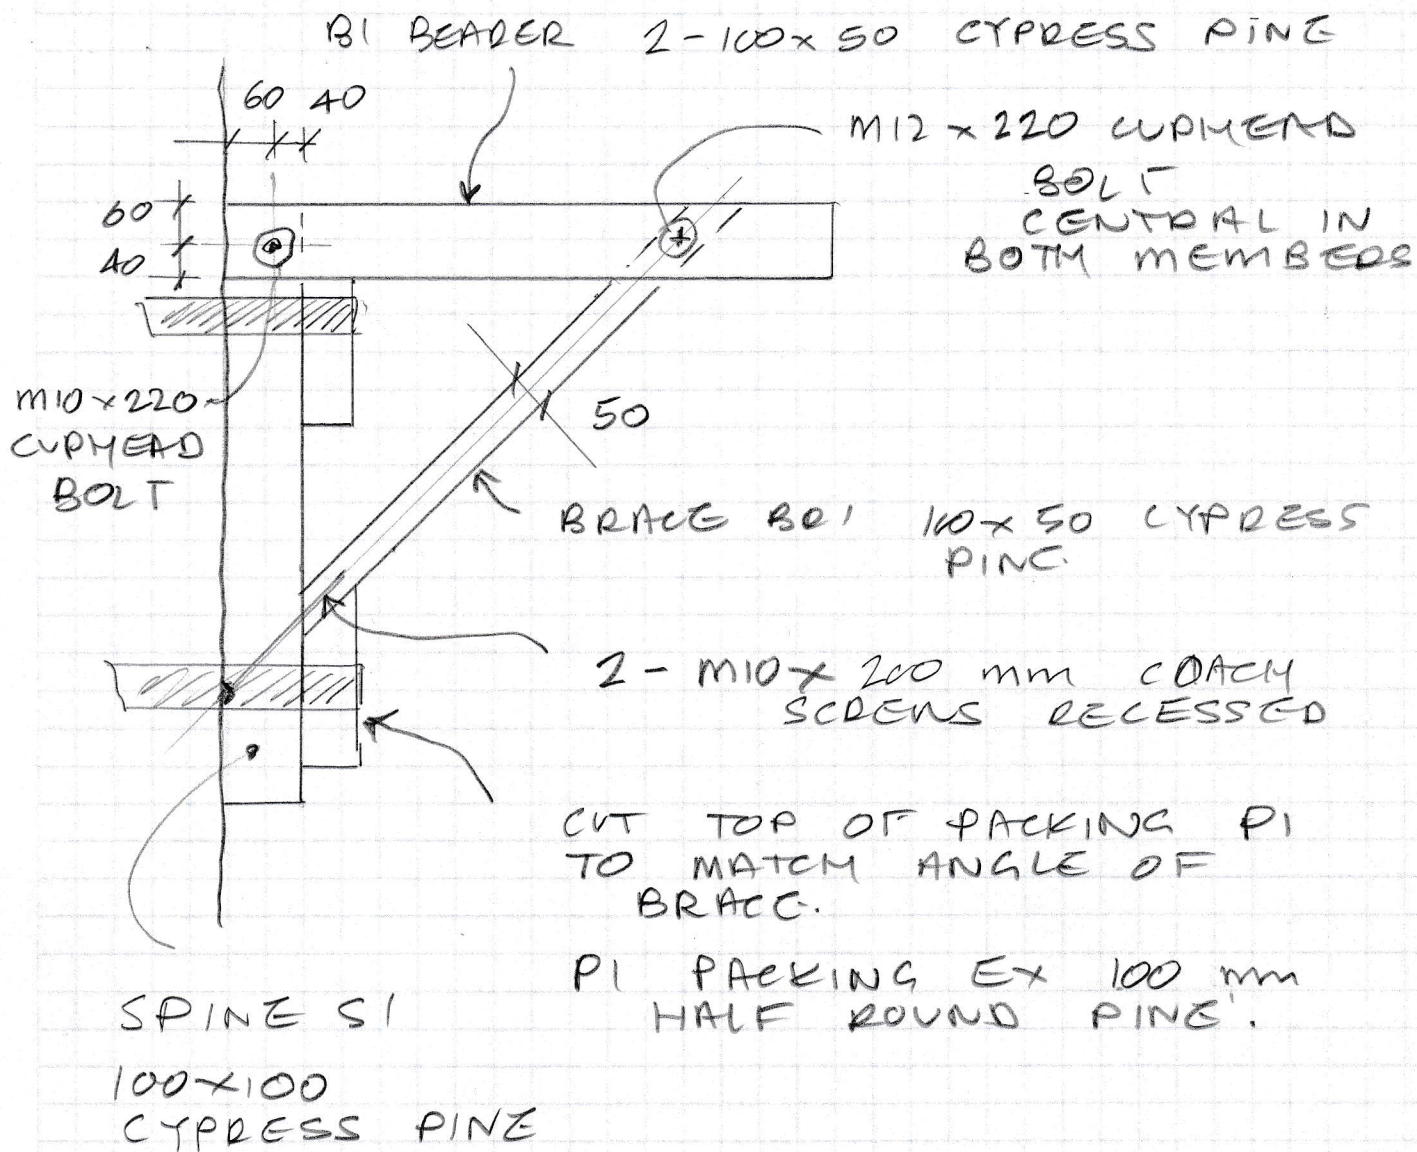 B1 BEARER 2-100 x 50 CYPRESS PINE
60 40
M12 x 220 CUPHEAD
BOLT
CENTRAL IN
BOTH MEMBERS
60
40
M10 x 220
CUPHEAD
BOLT
50
BRACE BR1 100 x 50 CYPRESS
PINE
2 - M10 x 200 mm COACH
SCREWS RECESSED
CUT TOP OF PACKING P1
TO MATCH ANGLE OF
BRACE.
P1 PACKING EX 100 mm
HALF ROUND PINE.
SPINE S1
100 x 100
CYPRESS PINE